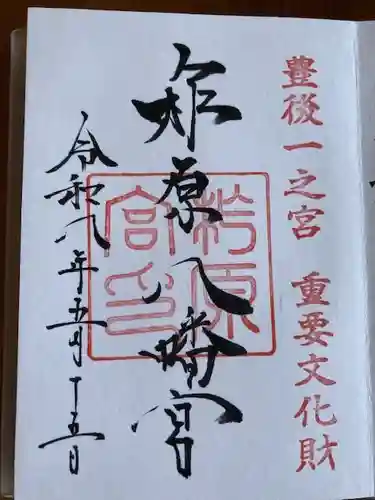 豊後一之宮 重要文化財
柞原八幡宮
柞原
宮印
令和八年五月十五日